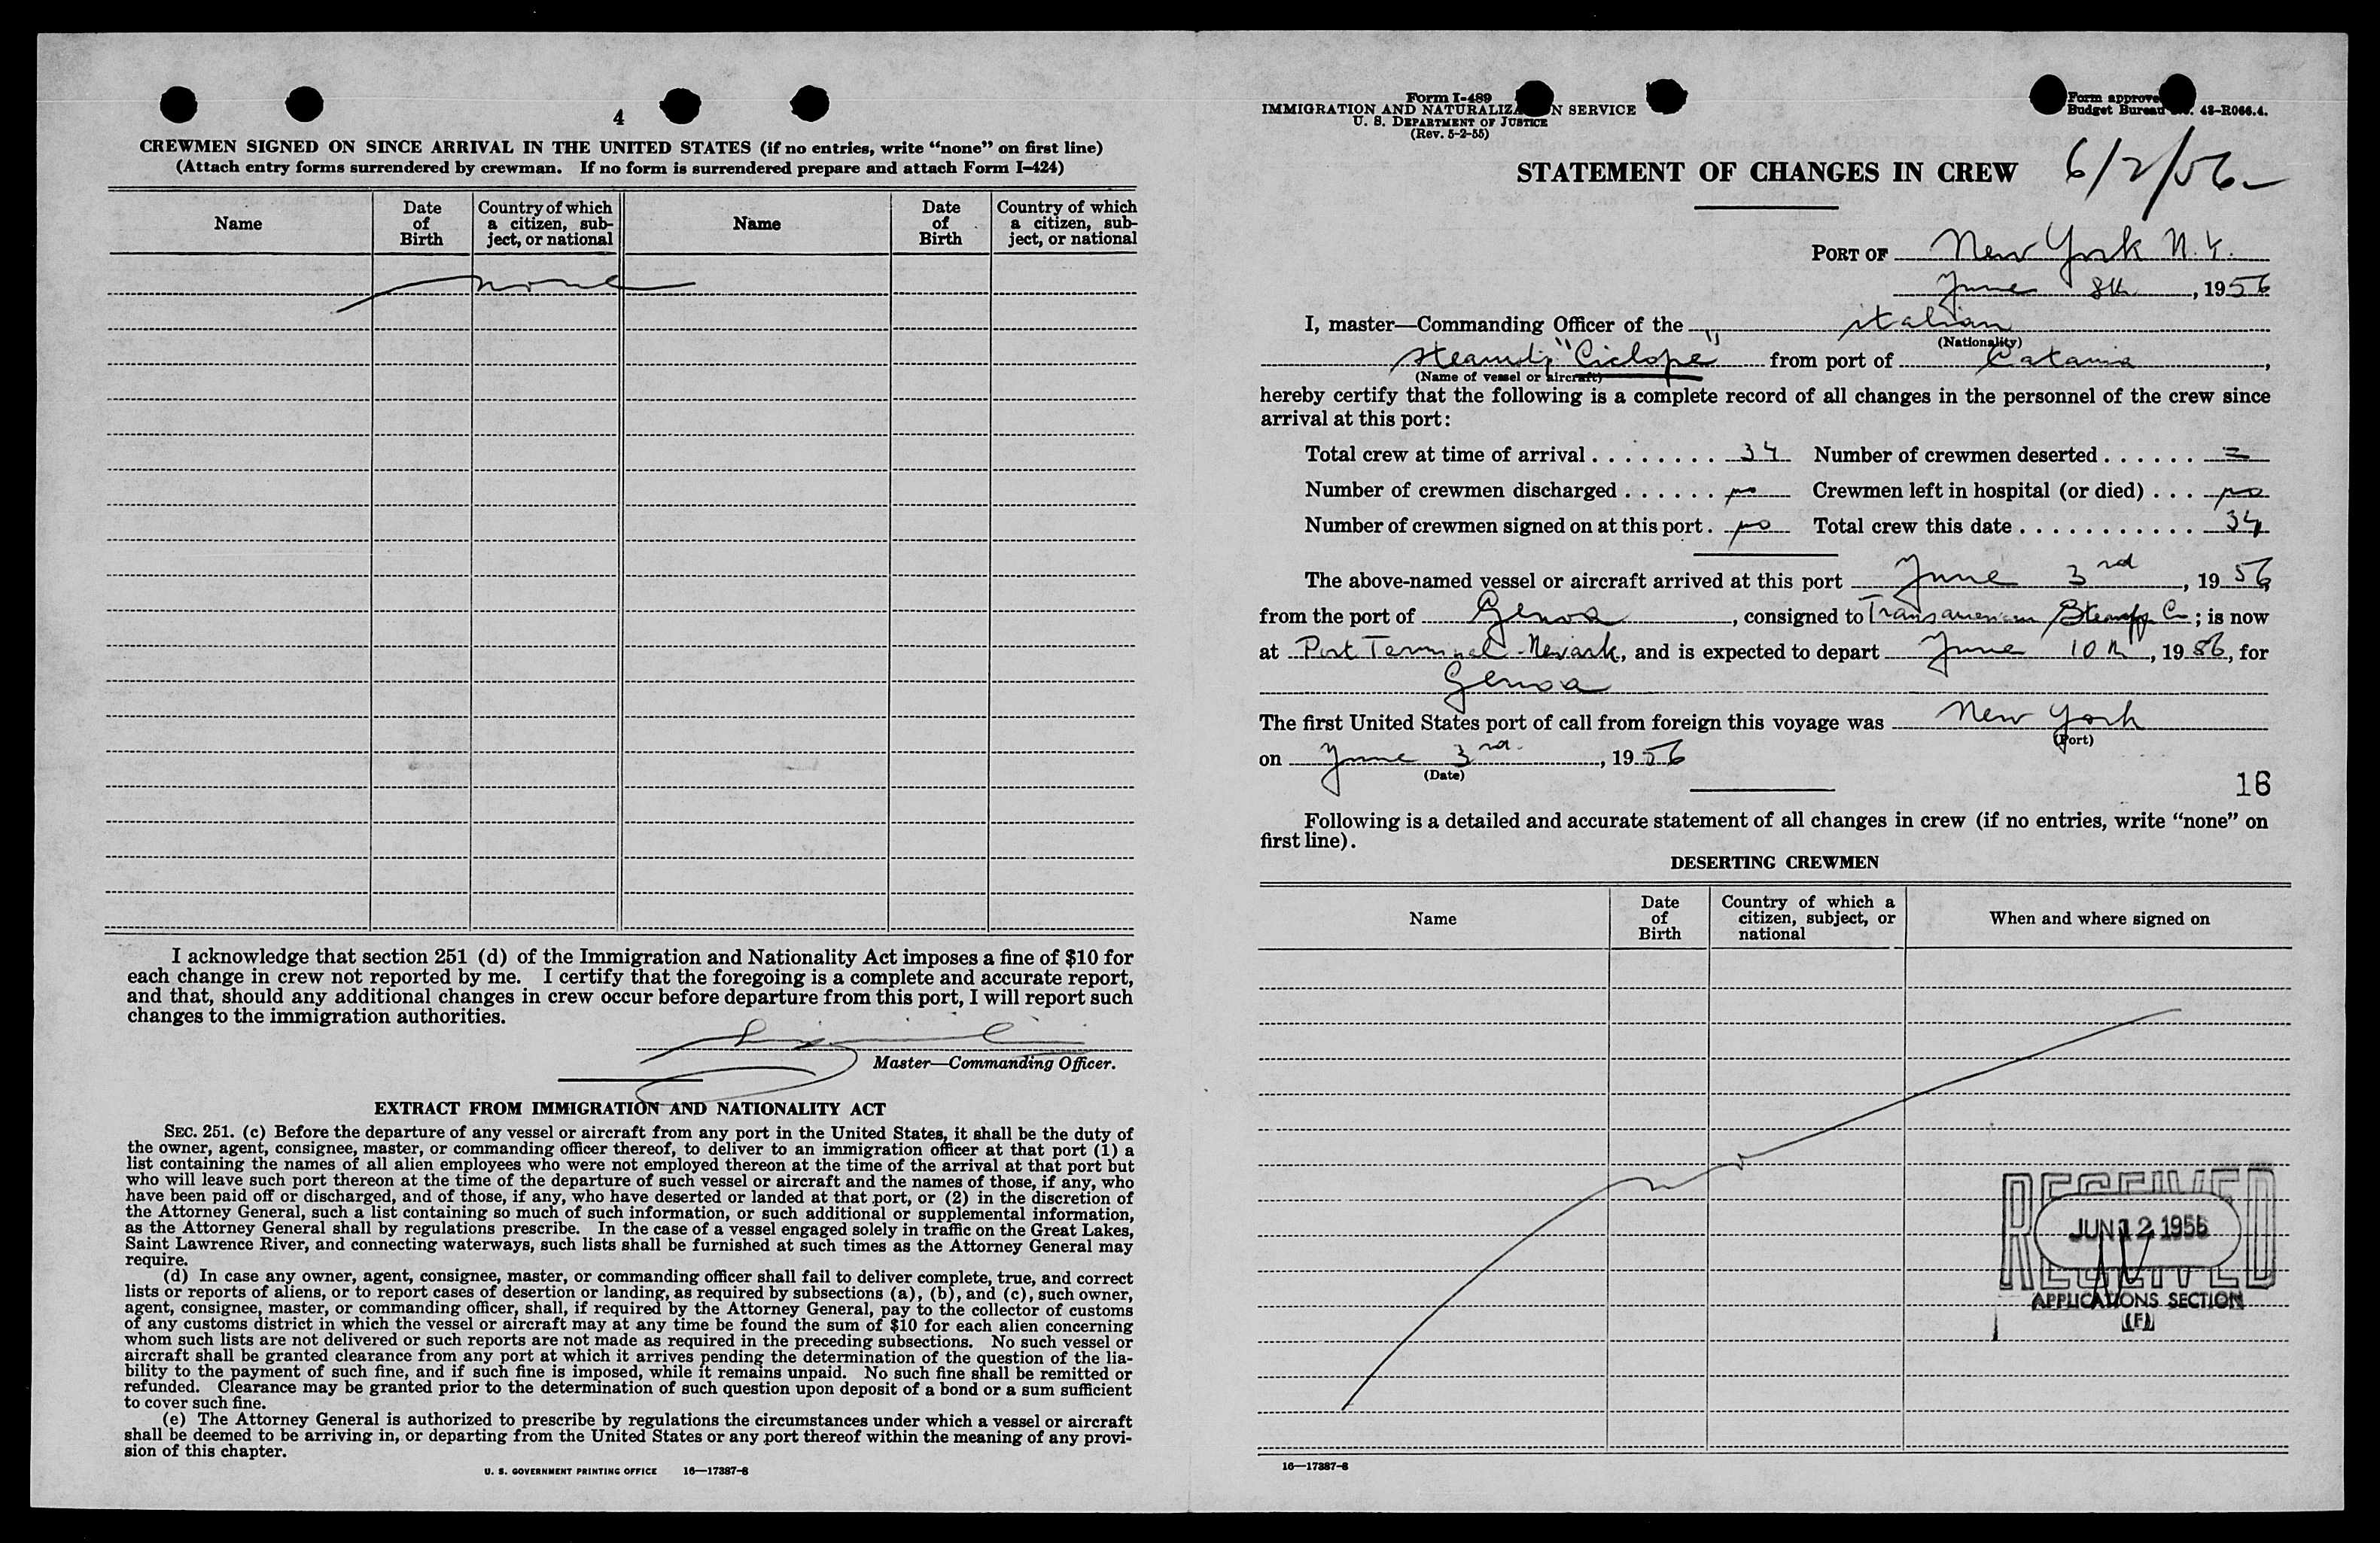 4
CREWMEN SIGNED ON SINCE ARRIVAL IN THE UNITED STATES (if no entries, write “none” on first line)
(Attach entry forms surrendered by crewman. If no form is surrendered prepare and attach Form I-424)
Name Date of Birth Country of which a citizen, subject, or national Name Date of Birth Country of which a citizen, subject, or national
none
I acknowledge that section 251 (d) of the Immigration and Nationality Act imposes a fine of $10 for
each change in crew not reported by me. I certify that the foregoing is a complete and accurate report,
and that, should any additional changes in crew occur before departure from this port, I will report such
changes to the immigration authorities.
Master—Commanding Officer.
EXTRACT FROM IMMIGRATION AND NATIONALITY ACT
SEC. 251. (c) Before the departure of any vessel or aircraft from any port in the United States, it shall be the duty of
the owner, agent, consignee, master, or commanding officer thereof, to deliver to an immigration officer at that port (1) a
list containing the names of all alien employees who were not employed thereon at the time of the arrival at that port but
who will leave such port thereon at the time of the departure of such vessel or aircraft and the names of those, if any, who
have been paid off or discharged, and of those, if any, who have deserted or landed at that port, or (2) in the discretion of
the Attorney General, such a list containing so much of such information, or such additional or supplemental information,
as the Attorney General shall by regulations prescribe. In the case of a vessel engaged solely in traffic on the Great Lakes,
Saint Lawrence River, and connecting waterways, such lists shall be furnished at such times as the Attorney General may
require.
(d) In case any owner, agent, consignee, master, or commanding officer shall fail to deliver complete, true, and correct
lists or reports of aliens, or to report cases of desertion or landing, as required by subsections (a), (b), and (c), such owner,
agent, consignee, master, or commanding officer, shall, if required by the Attorney General, pay to the collector of customs
of any customs district in which the vessel or aircraft may at any time be found the sum of $10 for each alien concerning
whom such lists are not delivered or such reports are not made as required in the preceding subsections. No such vessel or
aircraft shall be granted clearance from any port at which it arrives pending the determination of the question of the lia-
bility to the payment of such fine, and if such fine is imposed, while it remains unpaid. No such fine shall be remitted or
refunded. Clearance may be granted prior to the determination of such question upon deposit of a bond or a sum sufficient
to cover such fine.
(e) The Attorney General is authorized to prescribe by regulations the circumstances under which a vessel or aircraft
shall be deemed to be arriving in, or departing from the United States or any port thereof within the meaning of any provi-
sion of this chapter.
U. S. GOVERNMENT PRINTING OFFICE 16—17387-8
Form I-489
IMMIGRATION AND NATURALIZA N SERVICE
U. S. DEPARTMENT OF JUSTICE
(Rev. 5-2-55)
Form approve
Budget Bureau 43-R066.4.
STATEMENT OF CHANGES IN CREW
6/2/56
PORT OF New York N.Y.
June 8th, 1956
I, master—Commanding Officer of the italian
(Nationality)
steamship "Ciclope" from port of Catania,
(Name of vessel or aircraft)
hereby certify that the following is a complete record of all changes in the personnel of the crew since
arrival at this port:
Total crew at time of arrival . . . . . . . . 34 Number of crewmen deserted . . . . . . =
Number of crewmen discharged . . . . . . no Crewmen left in hospital (or died) . . . no
Number of crewmen signed on at this port . no Total crew this date . . . . . . . . . . . . 34
The above-named vessel or aircraft arrived at this port June 3rd, 1956
from the port of Genoa, consigned to Transamerican Steamship Co; is now
at Port Terminal - Newark, and is expected to depart June 10th, 1956, for
Genoa
The first United States port of call from foreign this voyage was New York
(Port)
on June 3rd, 1956
(Date)
16
Following is a detailed and accurate statement of all changes in crew (if no entries, write “none” on
first line).
DESERTING CREWMEN
Name Date of Birth Country of which a citizen, subject, or national When and where signed on
RECEIVED
JUN 12 1956
RECEIVED
APPLICATIONS SECTION
(F)
16—17387-8